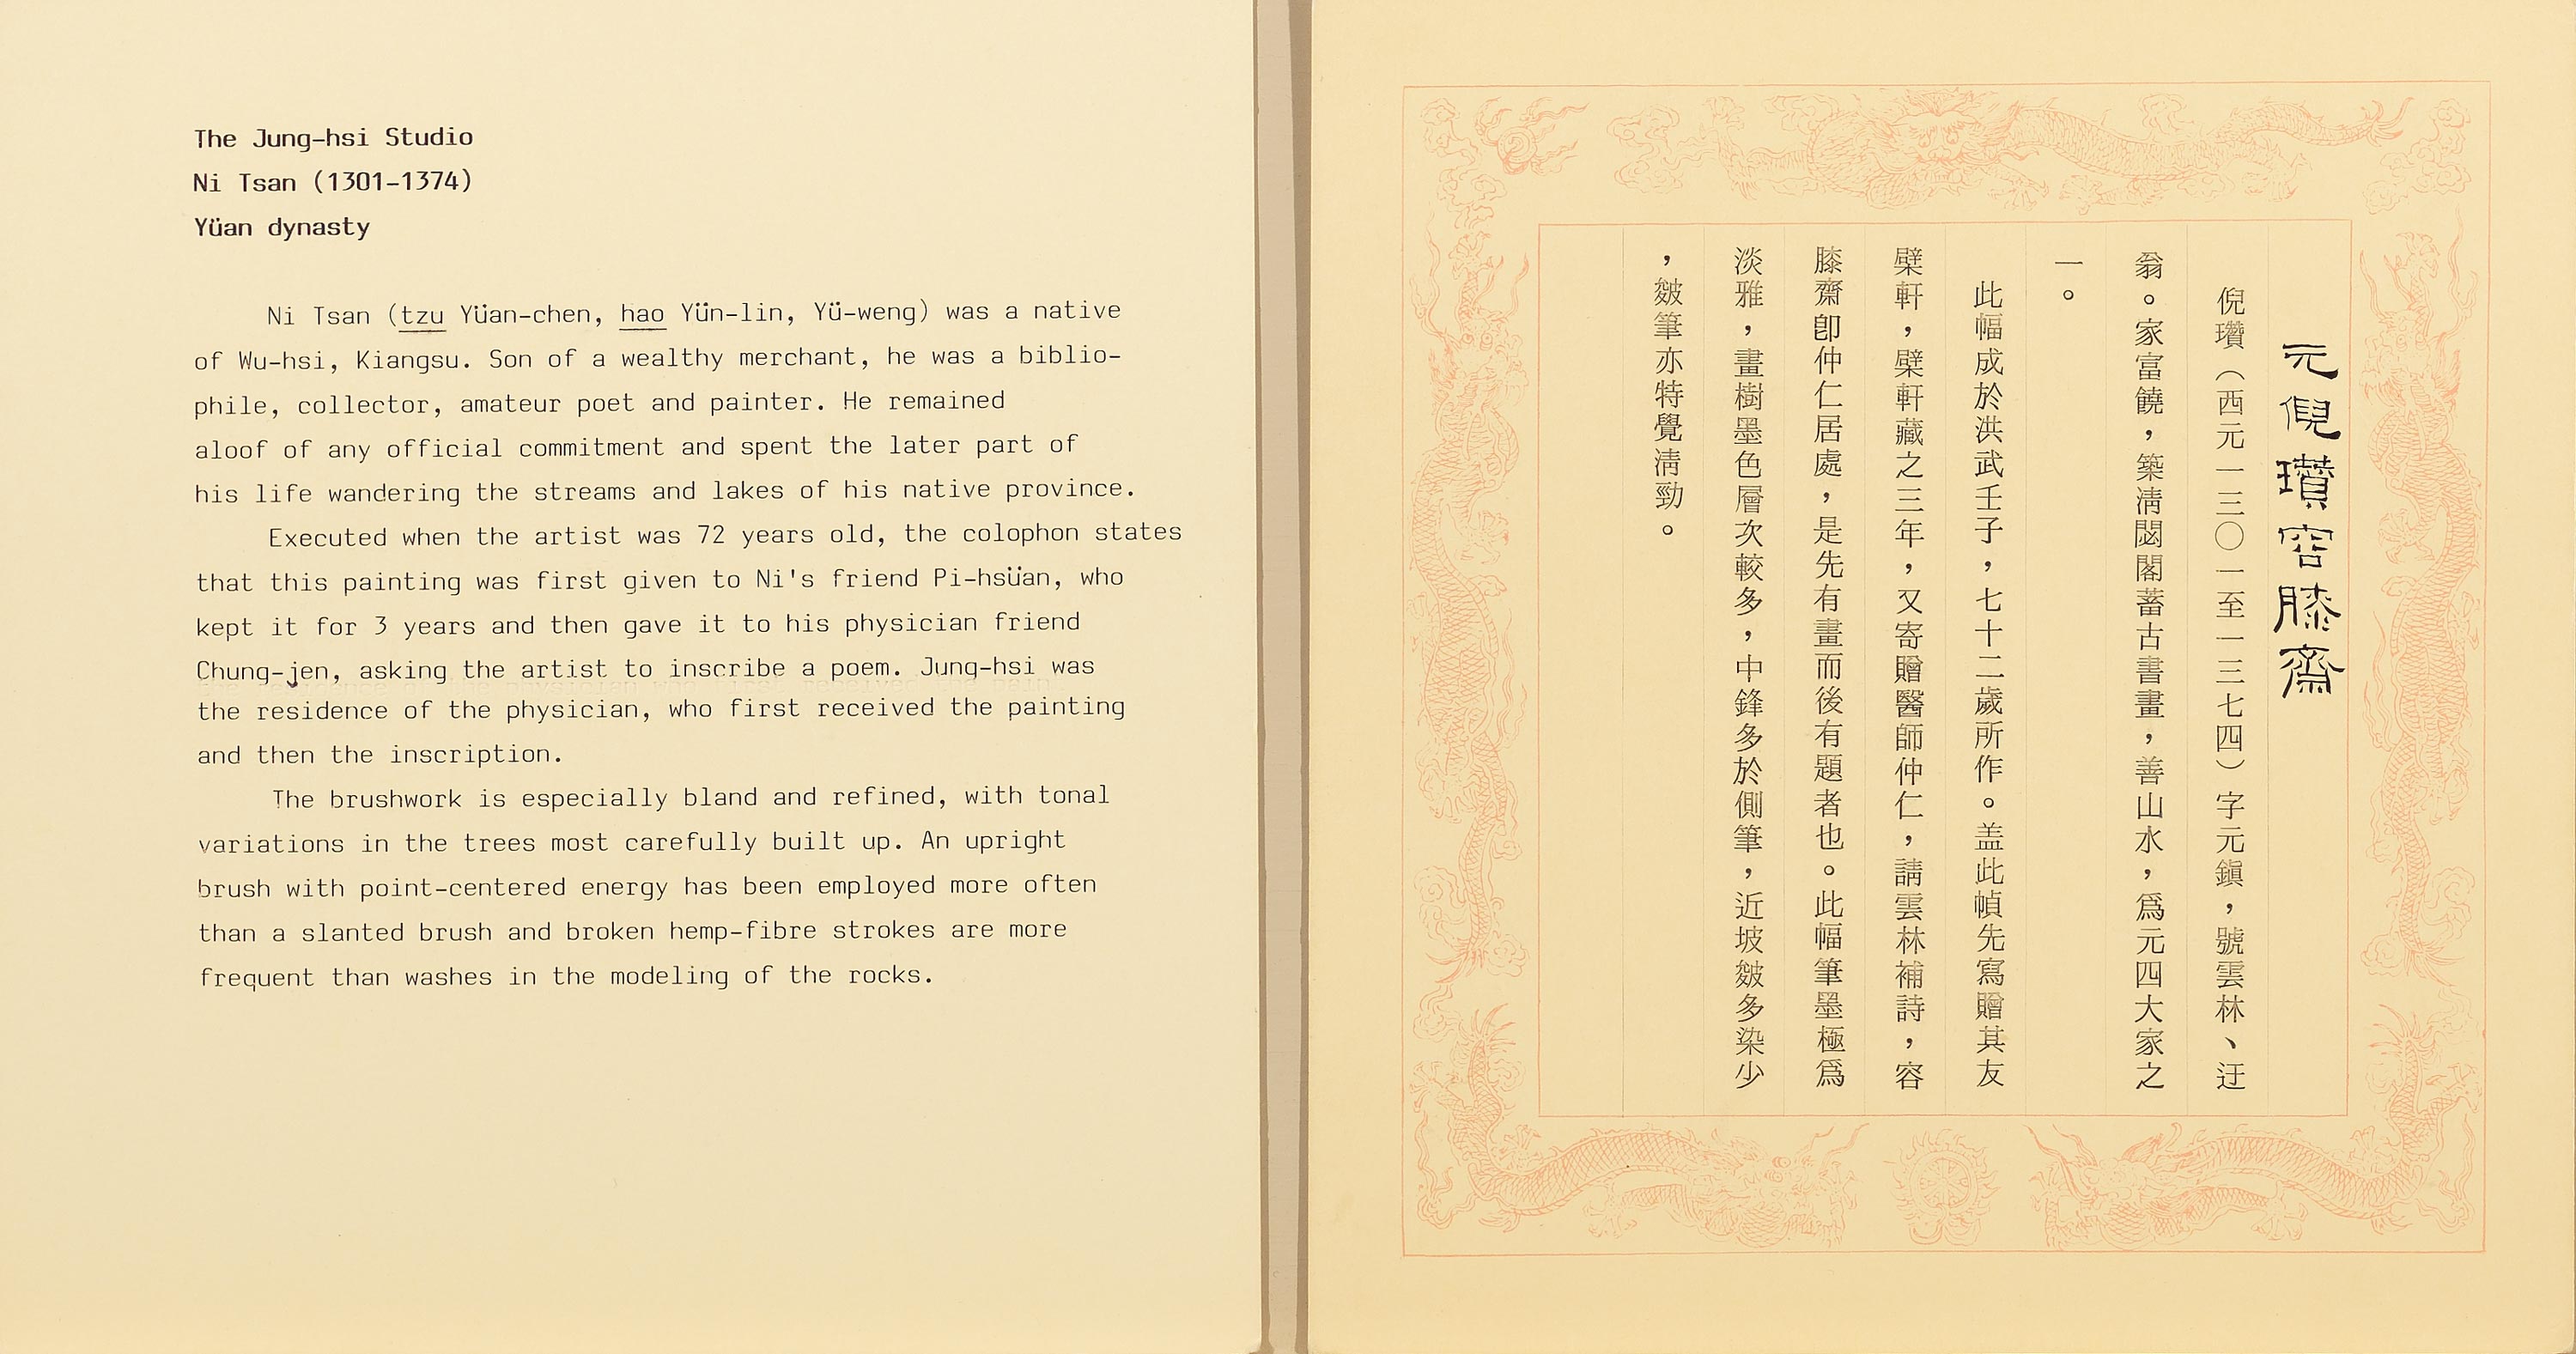 The Jung-hsi Studio
Ni Tsan (1301-1374)
Yüan dynasty
Ni Tsan (tzu Yüan-chen, hao Yün-lin, Yü-weng) was a native
of Wu-hsi, Kiangsu. Son of a wealthy merchant, he was a biblio-
phile, collector, amateur poet and painter. He remained
aloof of any official commitment and spent the later part of
his life wandering the streams and lakes of his native province.
Executed when the artist was 72 years old, the colophon states
that this painting was first given to Ni's friend Pi-hsüan, who
kept it for 3 years and then gave it to his physician friend
Chung-jen, asking the artist to inscribe a poem. Jung-hsi was
the residence of the physician, who first received the painting
and then the inscription.
The brushwork is especially bland and refined, with tonal
variations in the trees most carefully built up. An upright
brush with point-centered energy has been employed more often
than a slanted brush and broken hemp-fibre strokes are more
frequent than washes in the modeling of the rocks.
元倪瓚容膝齋
倪瓚（西元一三〇一至一三七四）字元鎭，號雲林、迂
翁。家富饒，築淸閟閣蓄古書畫，善山水，爲元四大家之
一。
此幅成於洪武壬子，七十二歲所作。盖此幀先寫贈其友
檗軒，檗軒藏之三年，又寄贈醫師仲仁，請雲林補詩，容
膝齋卽仲仁居處，是先有畫而後有題者也。此幅筆墨極爲
淡雅，畫樹墨色層次較多，中鋒多於側筆，近坡皴多染少
，皴筆亦特覺淸勁。